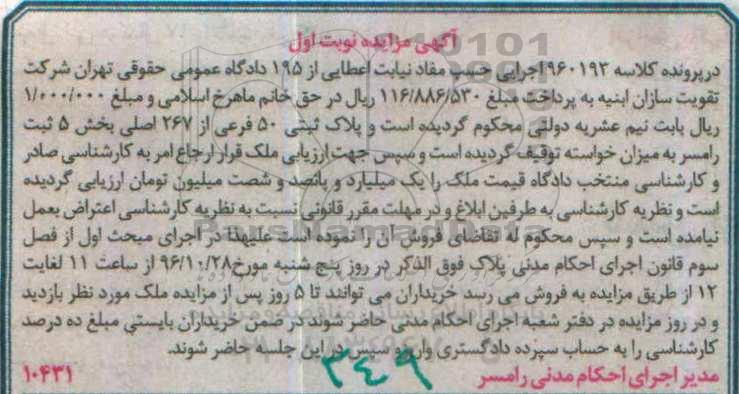 آگهی مزایده نوبت اول
در پرونده کلاسه ۹۶۰۱۹۲ اجرایی حسب مفاد نیابت اعطایی از ۱۹۵ دادگاه عمومی حقوقی تهران شرکت
تقویت سازان ابنیه به پرداخت مبلغ ۱۱۶/۸۸۶/۵۳۰ ریال در حق خانم ماهرخ اسلامی و مبلغ ۱/۰۰۰/۰۰۰
ریال بابت نیم عشریه دولتی محکوم گردیده است و پلاک ثبتی ۵۰ فرعی از ۲۶۷ اصلی بخش ۵ ثبت
رامسر به میزان خواسته توقیف گردیده است و سپس جهت ارزیابی ملک قرار ارجاع امر به کارشناسی صادر
و کارشناسی منتخب دادگاه قیمت ملک را یک میلیارد و پانصد و شصت میلیون تومان ارزیابی گردیده
است و نظریه کارشناسی به طرفین ابلاغ و در مهلت مقرر قانونی نسبت به نظریه کارشناسی اعتراض بعمل
نیامده است و سپس محکوم له تقاضای فروش آن را نموده است علیهذا در اجرای مبحث اول از فصل
سوم قانون اجرای احکام مدنی پلاک فوق الذکر در روز پنج شنبه مورخ ۹۶/۱۰/۲۸ از ساعت ۱۱ لغایت
۱۲ از طریق مزایده به فروش می رسد خریداران می توانند تا ۵ روز پس از مزایده ملک مورد نظر بازدید
و در روز مزایده در دفتر شعبه اجرای احکام مدنی حاضر شوند در ضمن خریداران بایستی مبلغ ده درصد
کارشناسی را به حساب سپرده دادگستری واریز و سپس در این جلسه حاضر شوند.
مدیر اجرای احکام مدنی رامسر ۱۰۴۳۱
۳۴۹
ParsNamadData